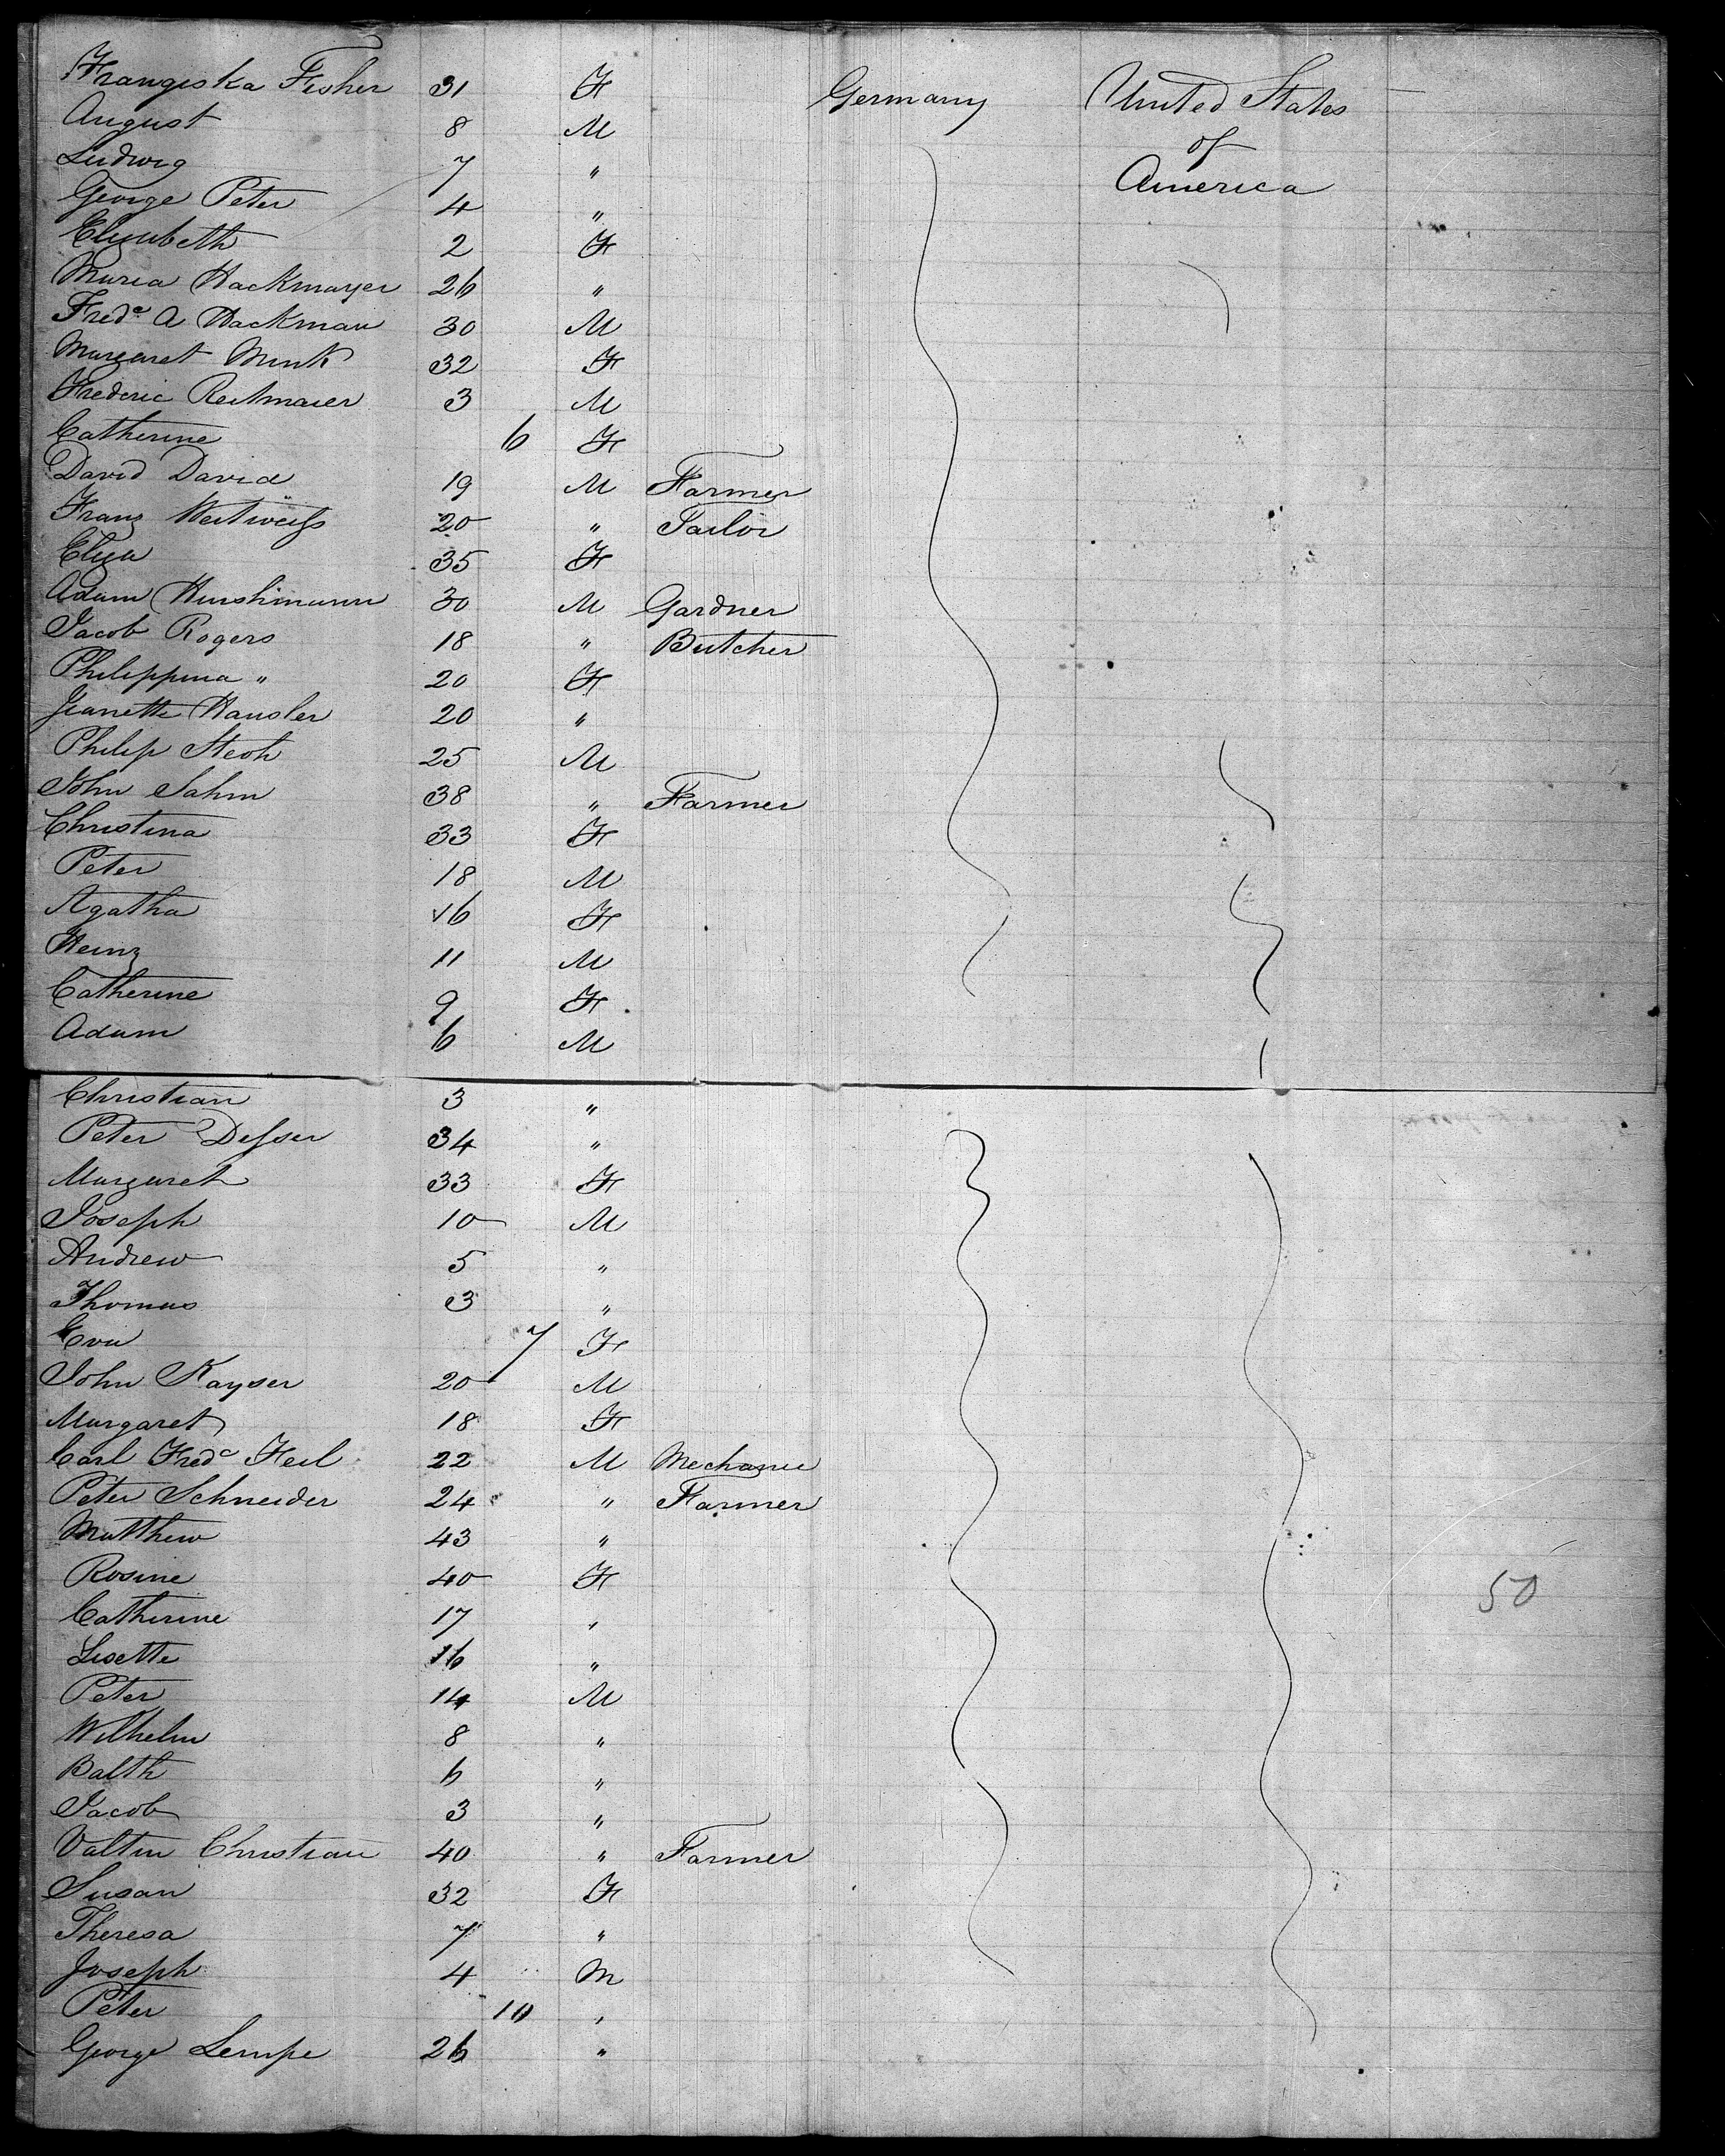 Franziska Fisher 31 F Germany United States
August 8 M of
Ludwig 7 " America
George Peter 4 "
Elizabeth 2 F
Maria Hackmayer 26 "
Fredc A Hackman 30 M
Margaret Munk 32 F
Frederic Reitmaier 3 M
Catherine 6 F
David David 19 M Farmer
Franz 20 " Tailor
Eliza 35 F
Adam Hirshimann 30 M Gardner
Jacob Rogers 18 " Butcher
Philippina " 20 F
Jeanette Hausler 20 "
Philip 25 M
John Sahm 38 " Farmer
Christina 33 F
Peter 18 M
Agatha 16 F
Heinz 11 M
Catherine 9 F
Adam 6 M
Christian 3 "
Peter Desser 34 "
Margaret 33 F
Joseph 10 M
Andrew 5 "
Thomas 3 "
Eva 7 F
John Kayser 20 M
Margaret 18 F
Carl Fredc Heil 22 M Mechanic
Peter Schneider 24 " Farmer
Matthew 43 "
Rosine 40 F
Catherine 17 " 50
Lisette 16 "
Peter 14 M
Wilhelm 8 "
Balth 6 "
Jacob 3 "
Valtin Christian 40 " Farmer
Susan 32 F
Theresa 7 "
Joseph 4 M
Peter 10 "
George Lempe 26 "